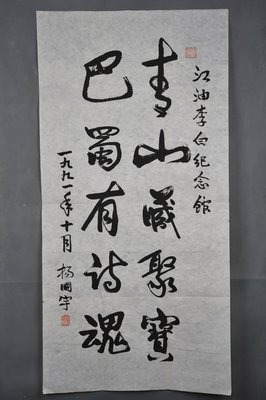 江油李白纪念館
青山藏聚寶
巴蜀有诗魂
一九九一年十月 楊国宇